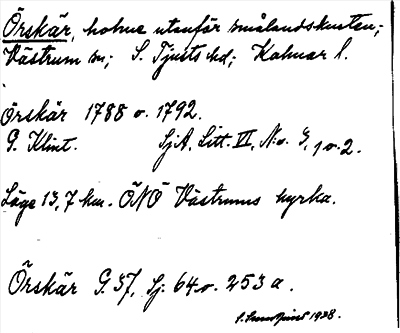 Örskär, holme utanför smålandskusten;
Västrum sn; S. Tjusts hd; Kalmar l.
Örskär 1788 o. 1792.
G. Klint. SjA, Litt. VI, No. 9, 1 o. 2.
Läge 13,7 km. ÖNÖ Västrums kyrka.
Örskär G. 37, Sj. 64 o. 253 a.
1938.